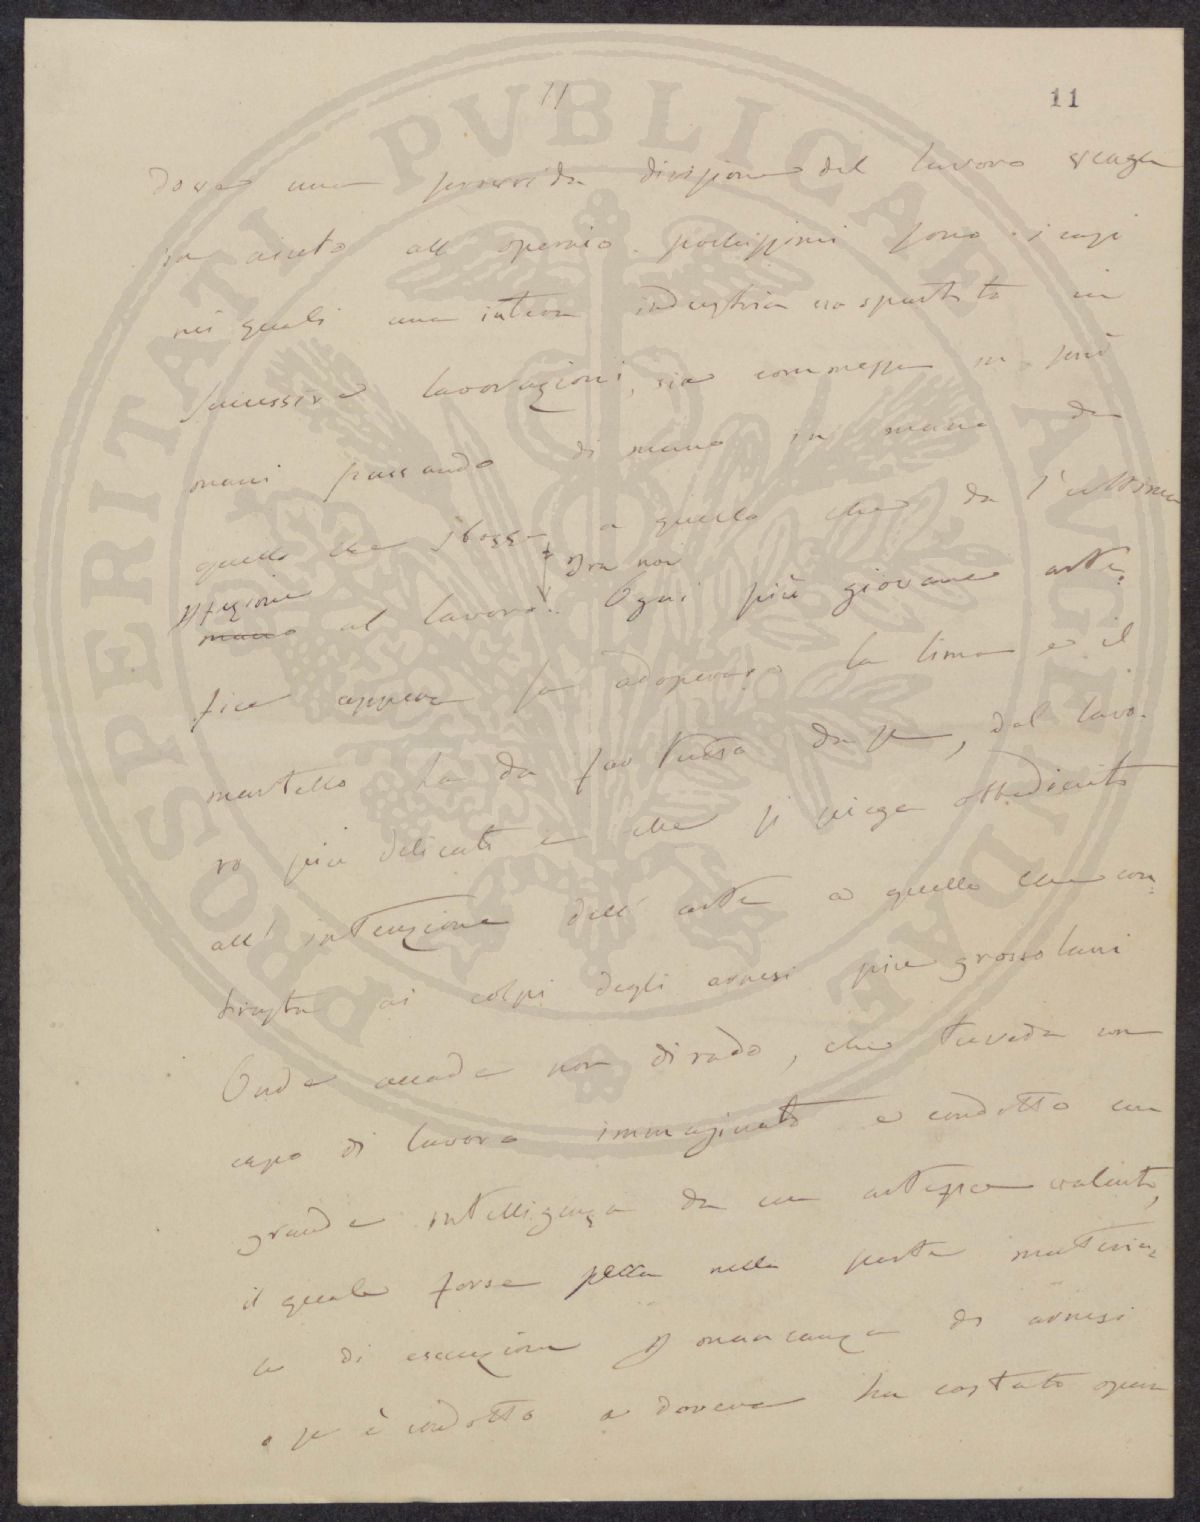 11
11
PROSPERITATI PVBLICAE AVGENDAE
dove una provvida divisione del lavoro venga
in aiuto all operaio. pochissimi sono i casi
nei quali una intera industria era spartita in
successive lavorazioni, sia commessa in più
mani passando di mano in mano da
quello che sbozza a quello che da l'ultima
mano al lavoro. Ogni più giovane arte-
Fra noi
fice appena sa adoperare la lima e il
martello ha da far tutto da se, dal lavo-
ro più delicato e che si piega obbediente
all' intenzione dell' arte a quello che con-
trasta ai colpi degli arnesi più grossolani
Onde accade non di rado, che tu veda un
capo di lavoro immaginato e condotto con
grande intelligenza da un artefice valente,
il quale forse pecca nella parte materia-
le di esecuzione p mancanza di arnesi
o se è condotto a dovere ha costato spese